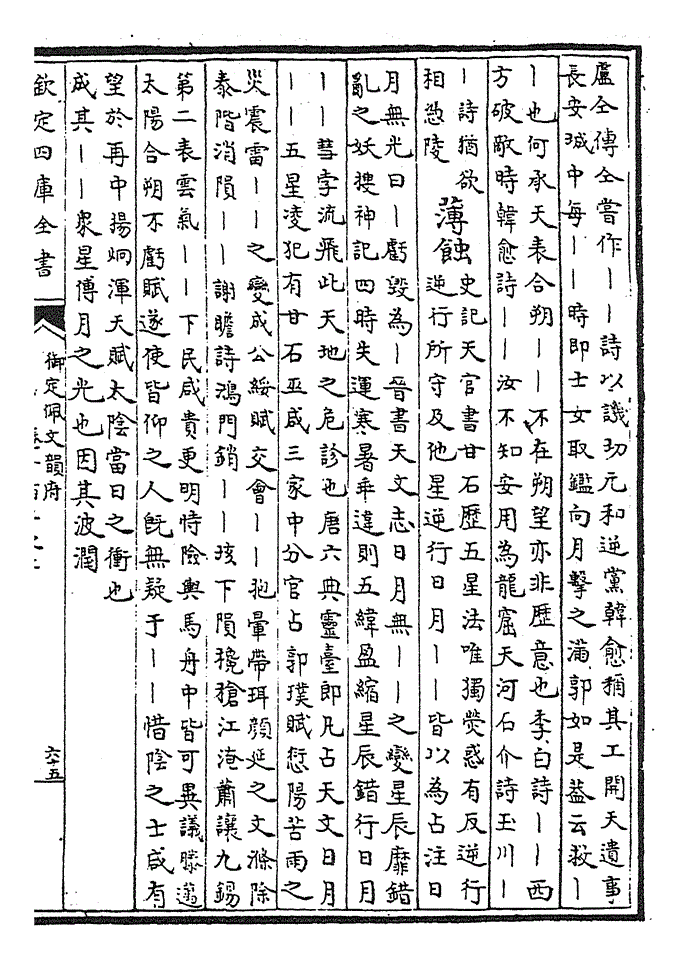 盧仝傳仝嘗作丨丨詩以譏切元和逆黨韓愈稱其工開天遺事
長安城中每丨丨時即士女取鑑向月擊之滿郭如是葢云救丨
丨也何承天表合朔丨丨不在朔望亦非歴意也李白詩丨丨西
方破敵時韓愈詩丨丨汝不知安用為龍窟天河石介詩玉川丨
丨詩猶欲
相慿陵
薄蝕
史記天官書甘石歴五星法唯獨熒惑有反逆行
逆行所守及他星逆行日月丨丨皆以為占注日
月無光曰丨虧毀為丨晉書天文志日月無丨丨之變星辰靡錯
亂之妖搜神記四時失運寒暑乖違則五緯盈縮星辰錯行日月
丨丨彗孛流飛此天地之危診也唐六典靈臺郎凡占天文日月
丨丨五星凌犯有甘石巫咸三家中分官占郭璞賦愆陽苦雨之
災震雷丨丨之變成公綏賦交會丨丨抱暈帶珥顔延之文滌除
泰階消隕丨丨謝瞻詩鴻門銷丨丨垓下隕欃槍江淹蕭讓九錫
第二表雲氣丨丨下民咸賁更明恃險輿馬舟中皆可異議滕邁
太陽合朔不虧賦遂使皆仰之人旣無疑于丨丨惜陰之士咸有
望於再中揚炯渾天賦太陰當日之衝也
成其丨丨衆星傅月之光也因其波潤
欽定四庫全書
御定佩文韻府
六十五